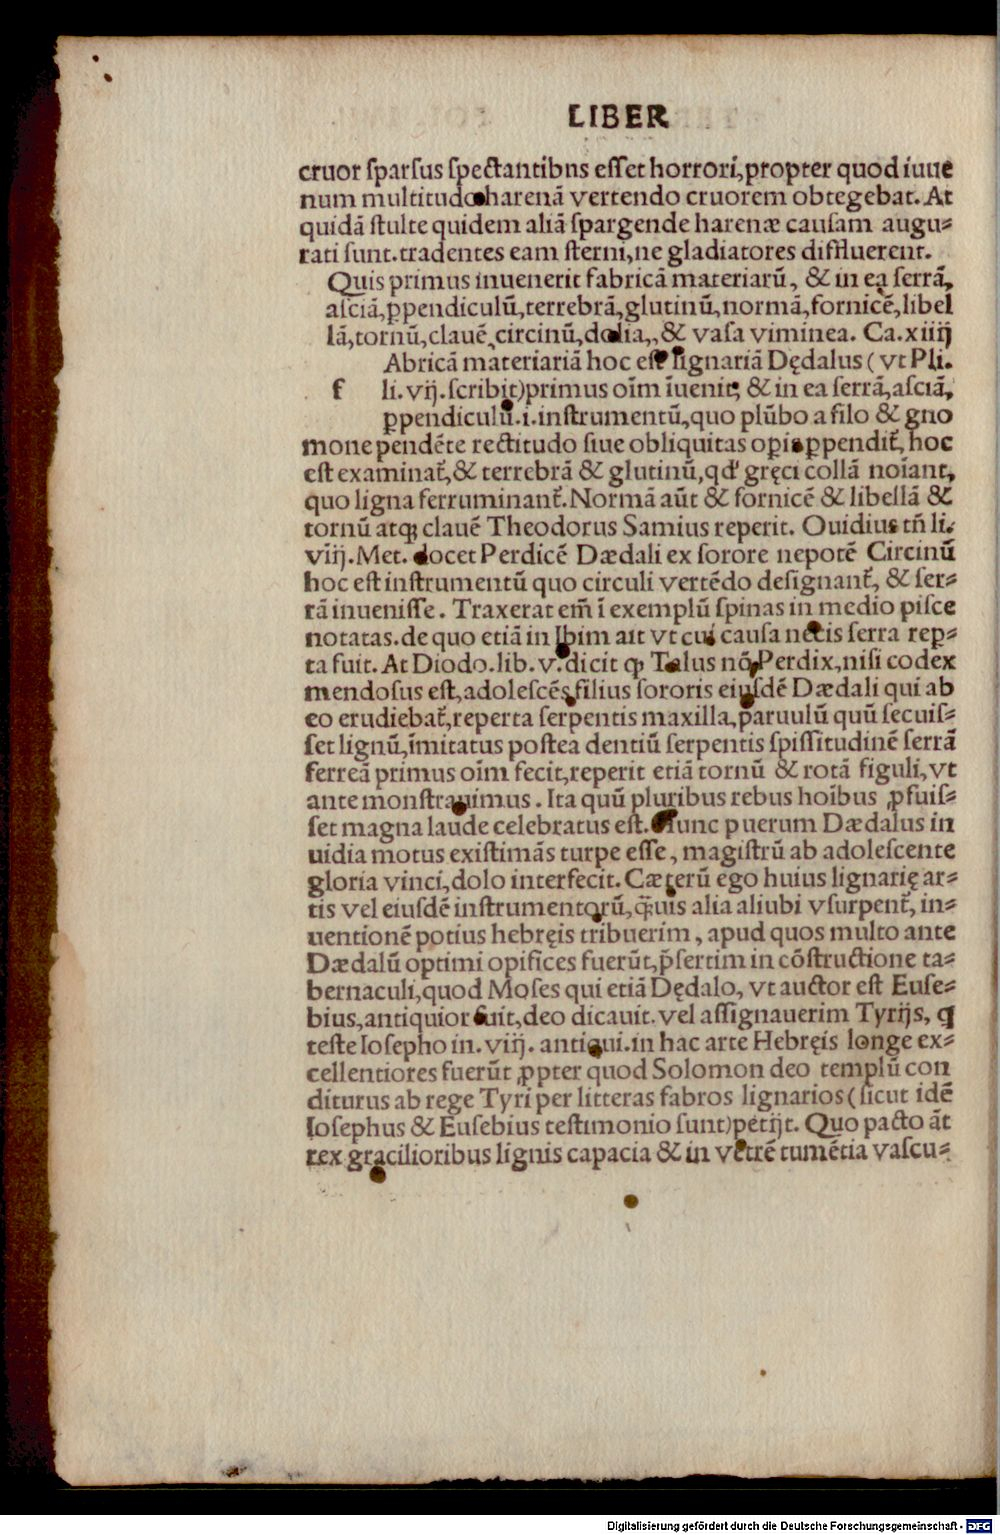 LIBER
cruor sparsus spectantibns esset horrori, propter quod iuue
num multitudo harenā vertendo cruorem obtegebat. At
quidā stulte quidem aliā spargende harenæ causam augu⸗
rati sunt. tradentes eam sterni, ne gladiatores diffluerent.
Quis primus inuenerit fabricā materiarū, & in ea serrā,
asciā, ꝑpendiculū, terrebrā, glutinū, normā, fornicē, libel
lā, tornū, clauē, circinū, dolia,, & vasa viminea. Ca. xiiij
Abricā materiariā hoc est lignariā Dędalus (vt Pli.
f li. vij. scribit) primus oīm īuenit, & in ea serrā, asciā,
ꝑpendiculū .i. instrumentū, quo plūbo a filo & gno
mone pendēte rectitudo siue obliquitas oꝑis ꝑpendit᷑, hoc
est examinat᷑, & terrebrā & glutinū, qd' gręci collā noīant,
quo ligna ferruminant᷑. Normā aūt & fornicē & libellā &
tornū atqꝫ clauē Theodorus Samius reperit. Ouidius tñ li.
viij. Met. docet Perdicē Dædali ex sorore nepotē Circinū
hoc est instrumentū quo circuli vertēdo designant᷑, & ser⸗
rā inuenisse. Traxerat em̄ ī exemplū spinas in medio pisce
notatas. de quo etiā in Ibim ait vt cui causa necis serra rep⸗
ta fuit. At Diodo. lib. v. dicit ꝙ Talus nō Perdix, nisi codex
mendosus est, adolescēs filius sororis eiusdē Dædali qui ab
eo erudiebat᷑, reperta serpentis maxilla, p̄aruulū quū secuis⸗
set lignū, īmitatus postea dentiū serpentis spissitudinē serrā
ferreā primus oīm fecit, reperit etiā tornū & rotā figuli, vt
ante monstrauimus. Ita quū pluribus rebus hoībus ꝓfuis⸗
set magna laude celebratus est. Hunc puerum Dædalus in
uidia motus existimās turpe esse, magistrū ab adolescente
gloria vinci, dolo interfecit. Cæterū ego huius lignarię ar⸗
tis vel eiusdē instrumentorū, q̄uis alia aliubi vsurpent᷑, in⸗
uentionē potius hebręis tribuerim, apud quos multo ante
Dædalū optimi opifices fuerūt, p̄sertim in cōstructione ta⸗
bernaculi, quod Moses qui etiā Dędalo, vt auctor est Euse⸗
bius, antiquior fuit, deo dicauit. vel assignauerim Tyrijs, q
teste Iosepho in. viij. antiqui. in hac arte Hebręis longe ex⸗
cellentiores fuerūt ꝓpter quod Solomon deo templū con
diturus ab rege Tyri per litteras fabros lignarios (sicut idē
Iosephus & Eusebius testimonio sunt) petijt. Quo pacto āt
rex gracilioribus lignis capacia & in vētrē tumētia vascu⸗
Digitalisierung gefördert durch die Deutsche Forschungsgemeinschaft - DFG